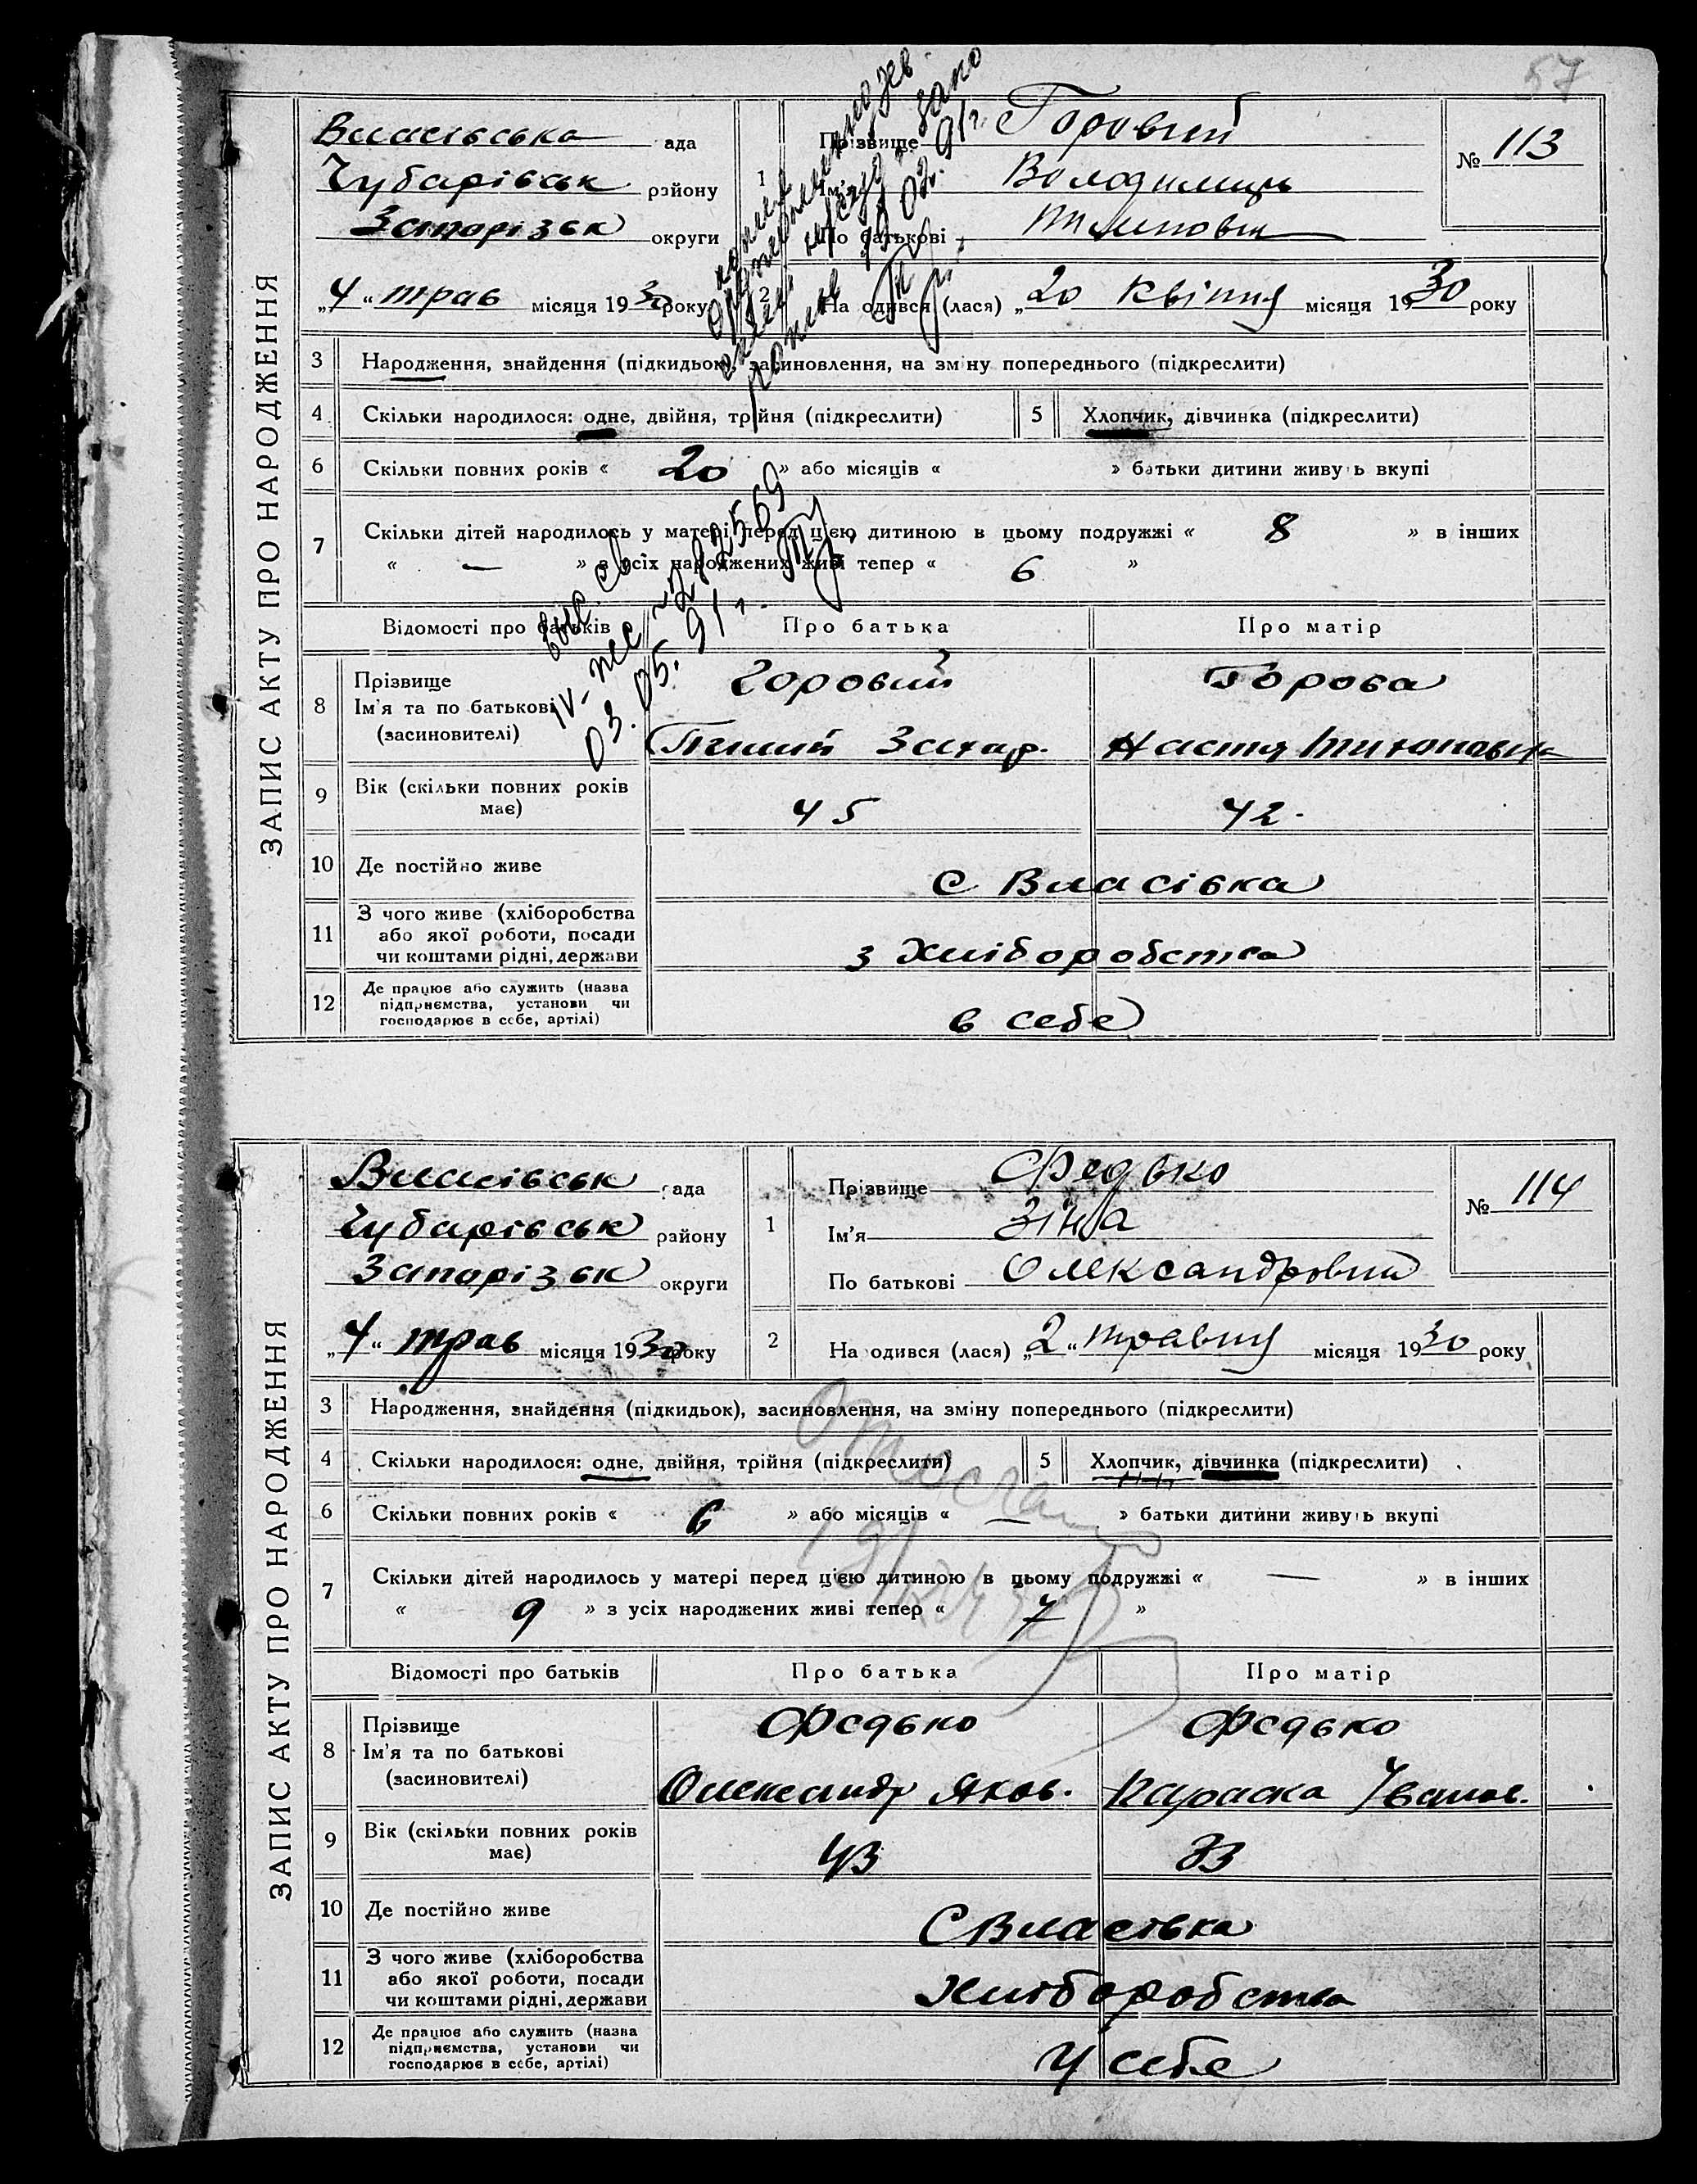 57
ЗАПИС АКТУ ПРО НАРОДЖЕННЯ
Власівська рада
Чубарівськ району
Запорізьк округи
„4“ трав місяця 1930 року
№ 113
1 Прізвище Горовий
Ім'я Володимир
По батькові
2 Народився (лася) „20 квітня місяця 1930 року
3 Народження, знайдення (підкидьок), засиновлення, на зміну попереднього (підкреслити)
4 Скільки народилося: одне, двійня, трійня (підкреслити)
5 Хлопчик, дівчинка (підкреслити)
6 Скільки повних років « 20 » або місяців « » батьки дитини живуть вкупі
7 Скільки дітей народилось у матері перед цією дитиною в цьому подружжі « 8 » в інших
« — » з усіх народжених живі тепер « 6 »
03.05.91 г.
Відомості про батьків Про батька Про матір
8 Прізвище Горовий Горова
Ім'я та по батькові
(засновителі) Захар. Настя
9 Вік (скільки повних років
має) 45 42.
10 Де постійно живе с Власівка
11 З чого живе (хліборобства
або якої роботи, посади
чи коштами рідні, держави з хліборобства
12 Де працює або служить (назва
підприємства, установи чи
господарює в себе, артілі) в себе
ЗАПИС АКТУ ПРО НАРОДЖЕННЯ
Власівськ рада
Чубарівськ району
Запорізьк округи
„4“ трав місяця 1930 року
№ 114
1 Прізвище Федько
Ім'я Зіна
По батькові Олександровна
2 Народився (лася) „2“ травня місяця 1930 року
3 Народження, знайдення (підкидьок), засиновлення, на зміну попереднього (підкреслити)
4 Скільки народилося: одне, двійня, трійня (підкреслити)
5 Хлопчик, дівчинка (підкреслити)
6 Скільки повних років « 6 » або місяців « — » батьки дитини живуть вкупі
7 Скільки дітей народилось у матері перед цією дитиною в цьому подружжі « — » в інших
« 9 » з усіх народжених живі тепер « 7 »
Відомості про батьків Про батька Про матір
8 Прізвище Федько Федько
Ім'я та по батькові
(засиновителі) Олександр Яков. Параска Іванов.
9 Вік (скільки повних років
має) 43 33
10 Де постійно живе С Власівка
11 З чого живе (хліборобства
або якої роботи, посади
чи коштами рідні, держави Хліборобства
12 Де працює або служить (назва
підприємства, установи чи
господарює в себе, артілі) У себе